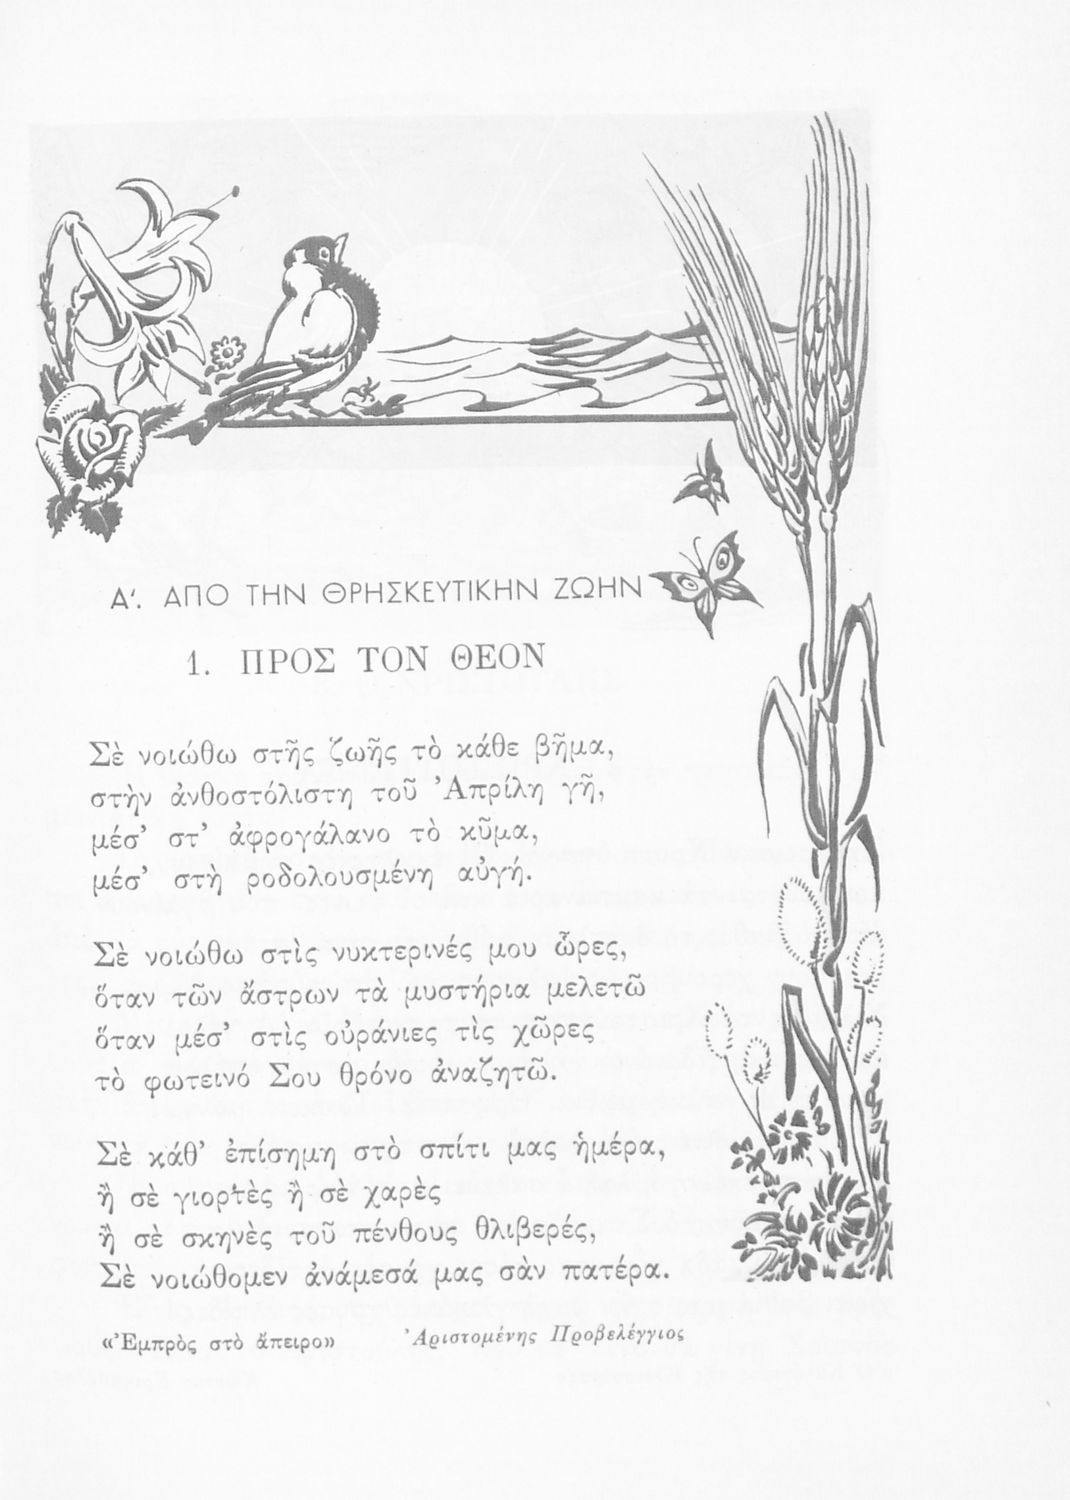 Α'. ΑΠΟ ΤΗΝ ΘΡΗΣΚΕΥΤΙΚΗΝ ΖΩΗΝ
1. ΠΡΟΣ ΤΟΝ ΘΕΟΝ
Σὲ νοιώθω στῆς ζωῆς τὸ κάθε βῆμα,
στὴν ἀνθοστόλιστη τοῦ Ἀπρίλη γῆ,
μέσ' στ' ἀφρογάλανο τὸ κῦμα,
μέσ' στὴ ροδολουσμένη αὐγή.
Σὲ νοιώθω στὶς νυκτερινές μου ὧρες,
ὅταν τῶν ἄστρων τὰ μυστήρια μελετῶ
ὅταν μέσ' στὶς οὐράνιες τὶς χῶρες
τὸ φωτεινό Σου θρόνο ἀναζητῶ.
Σὲ κάθ' ἐπίσημη στὸ σπίτι μας ἡμέρα,
ἢ σὲ γιορτὲς ἢ σὲ χαρὲς
ἢ σὲ σκηνὲς τοῦ πένθους θλιβερές,
Σὲ νοιώθομεν ἀνάμεσά μας σὰν πατέρα.
«Ἐμπρὸς στὸ ἄπειρο» Ἀριστομένης Προβελέγγιος